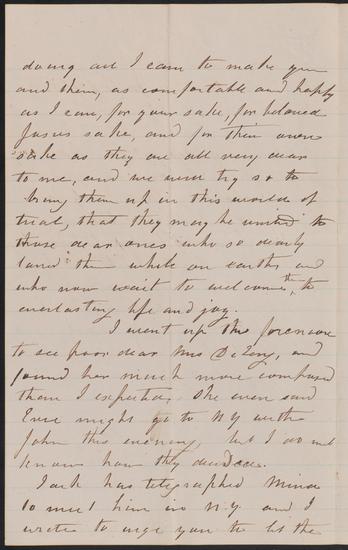 doing all I can to make you
and them, as comfortable and happy
as I can, for your sake, for beloved
Jesus sake, and for their own
sake as they are all very dear
to me, and we must try so to
bring them up in this world of
trial, that they may be united to
those dear ones who so dearly
loved them while on earth and
who now wait to welcome them to
everlasting life and joy.
I went up this forenoon
to see poor dear Mrs and
found her much more composed
than I expected. She even said
might go to NY with
John this evening, but I do not
know how they decide.
Jack has telegraphed Mina
to meet him in N.Y. and I
write to urge you to let the